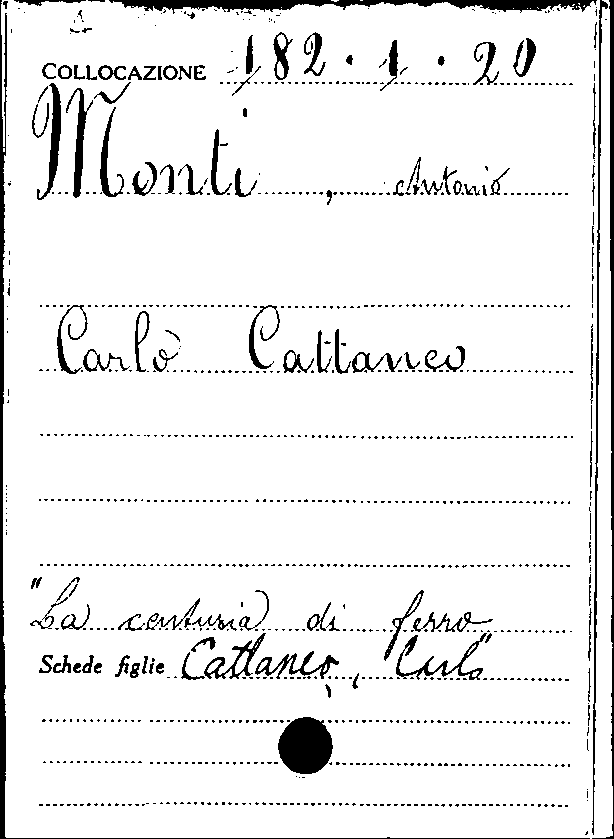 COLLOCAZIONE 182.1.20
Monti, Antonio
Carlo Cattaneo
"La centuria di ferro"
Schede figlie Cattaneo, Carlo